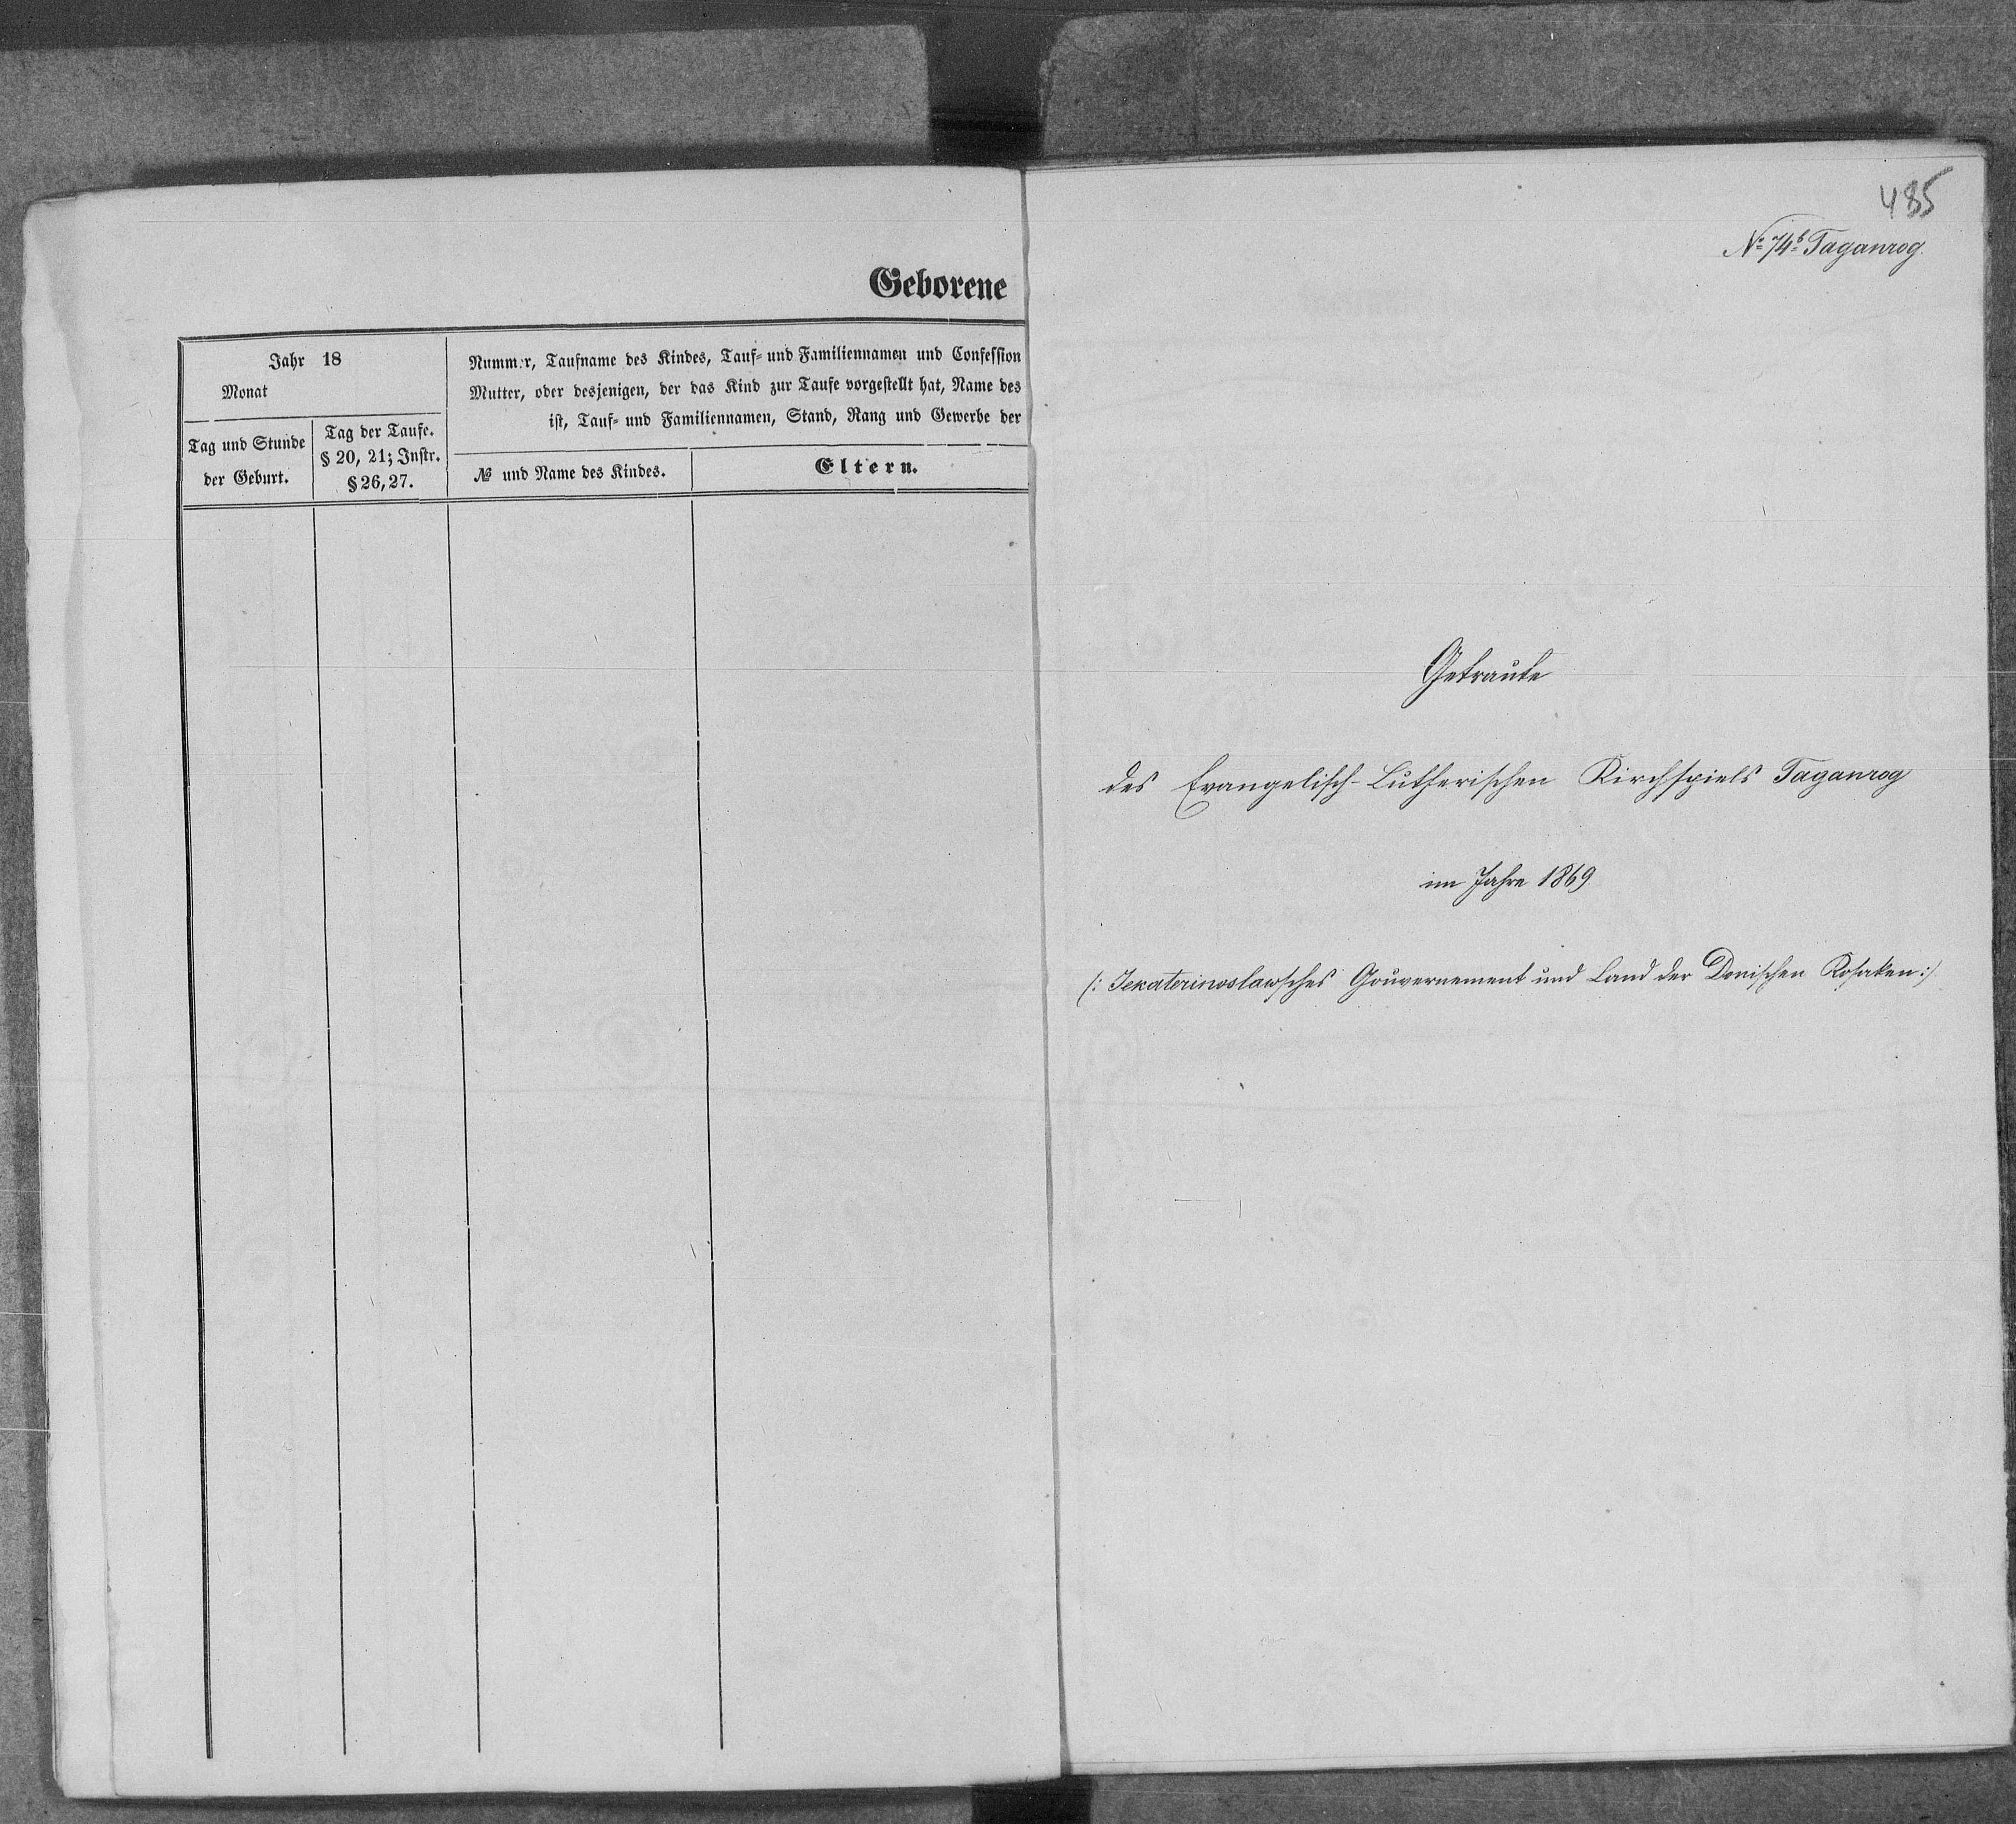 Geborene
Jahr 18
Monat
Tag und Stunde
der Geburt.
Tag der Taufe.
§ 20, 21; Instr.
§ 26, 27.
Nummer, Taufname des Kindes, Tauf- und Familiennamen und Confession
Mutter, oder desjenigen, der das Kind zur Taufe vorgestellt hat, Name des
ist, Tauf- und Familiennamen, Stand, Rang und Gewerbe der
№ und Name des Kindes.
Eltern.
485
№ 74b Taganrog.
Getraute
des Evangelisch-Lutherischen Kirchspiels Taganrog
im Jahre 1869
(: Jekaterinoslawsches Gouvernement und Land der Donischen Kosaken :)